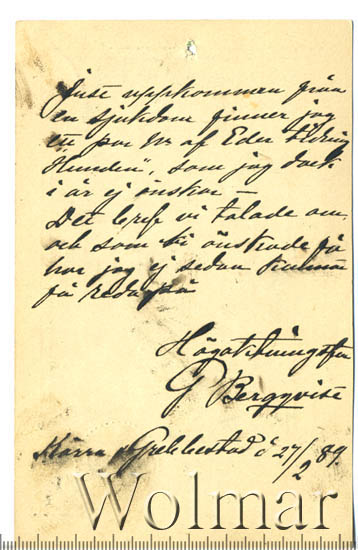 Just uppkommen från
en sjukdom finner jag
ett par nr af Eder tidning
Hunden", som jag dock
i år ej önskar —
Det bref vi talade om
och som Ni önskade få
har jag ej sedan kunnat
få reda på
Högaktningsfu
G Bergqvist
Kärra Grebbestad d 27/2 89.
Wolmar